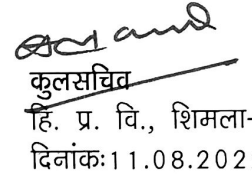 कुलसचिव
हि. प्र. वि., शिमला-
दिनांकः11.08.202